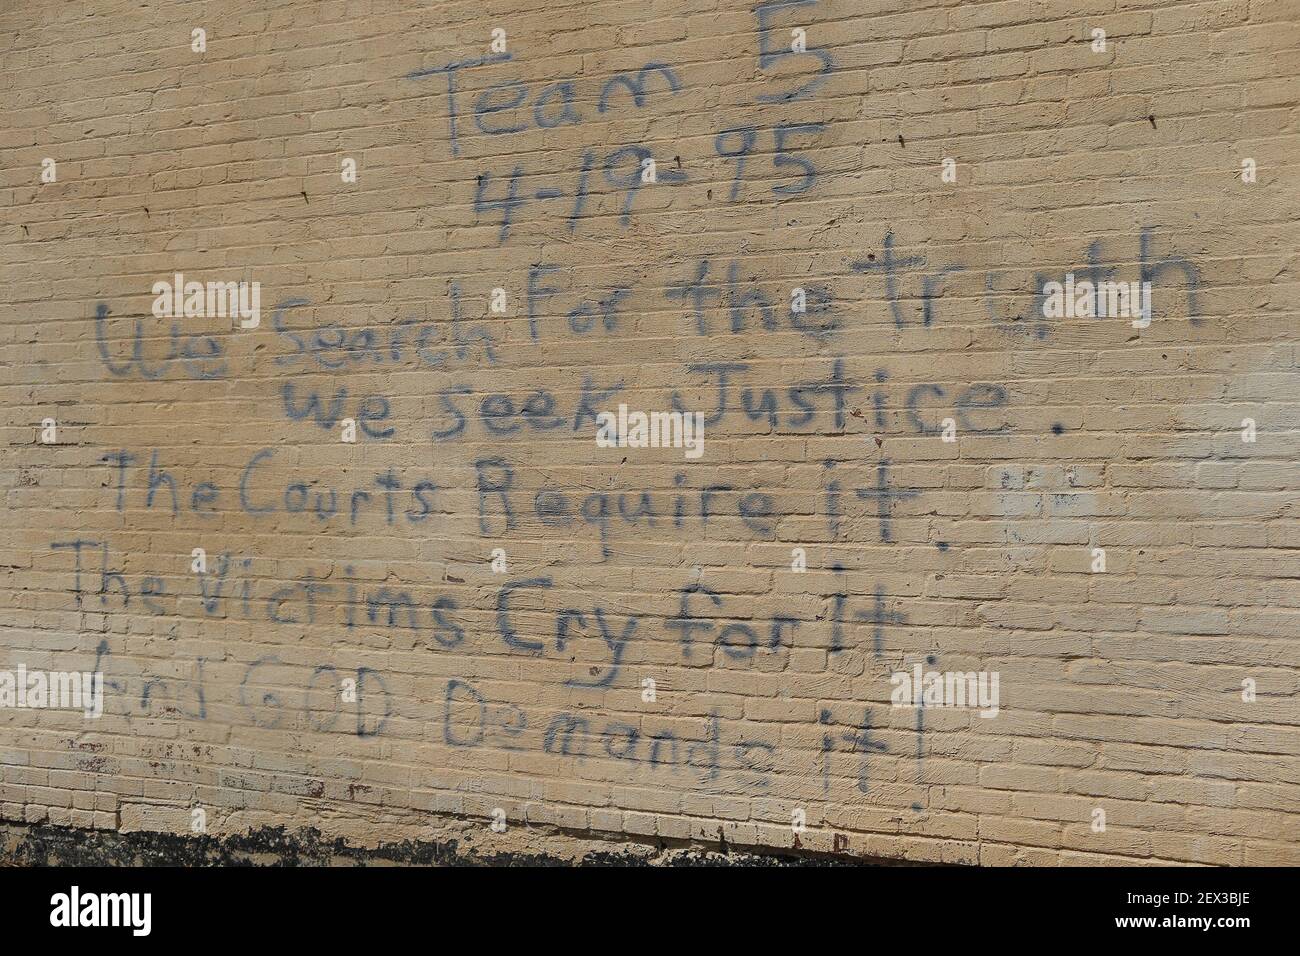 Team 5
4-19-95
We Search For the truth
We seek Justice.
The Courts Require it.
The Victims Cry for it.
And GOD Demands it!
alamy
alamy
Image ID: 2EX3BJE
www.alamy.com